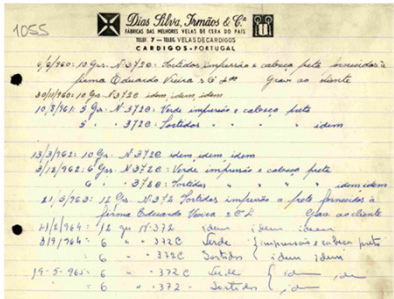 1055
Dias Silva, Irmãos & Cª
FÁBRICAS DAS MELHORES VELAS DE CERA DO PAÍS
TELEF. 7 — TELEG. VELAS DE CARDIGOS
CARDIGOS - PORTUGAL
6/6/960: 10 Grs. Nº 372C: Sortidos impursão e cabeça preta fornecidos à
firma Eduardo Vieira & Cª Lda Grav ao cliente
30/11/960: 10 Grs Nº 372C idem, idem, idem
10/3/961: 5 Grs. Nº 372C: Verde impursão e cabeça preta
5 " 372C: Sortidos " " " " idem
13/3/962: 10 Grs. Nº 372C idem, idem, idem
3/12/962: 6 Grs Nº 372C: Verde impursão e cabeça preta
6 " 372C: Sortidos " " " " idem idem
21/3/963: 12 Grs. Nº 372 Sortidos impursão a preto fornecidos à
firma Eduardo Vieira & Cª L Grav ao cliente
/2/964: 12 grs Nº 372 idem idem idem
3/9/964: 6 " 372C Verde } impursão e cabeça preto
6 " 372C Sortidos } idem idem
19-5-965: 6 " 372C Verde } idem
6 " 372 - Sortidos } idem